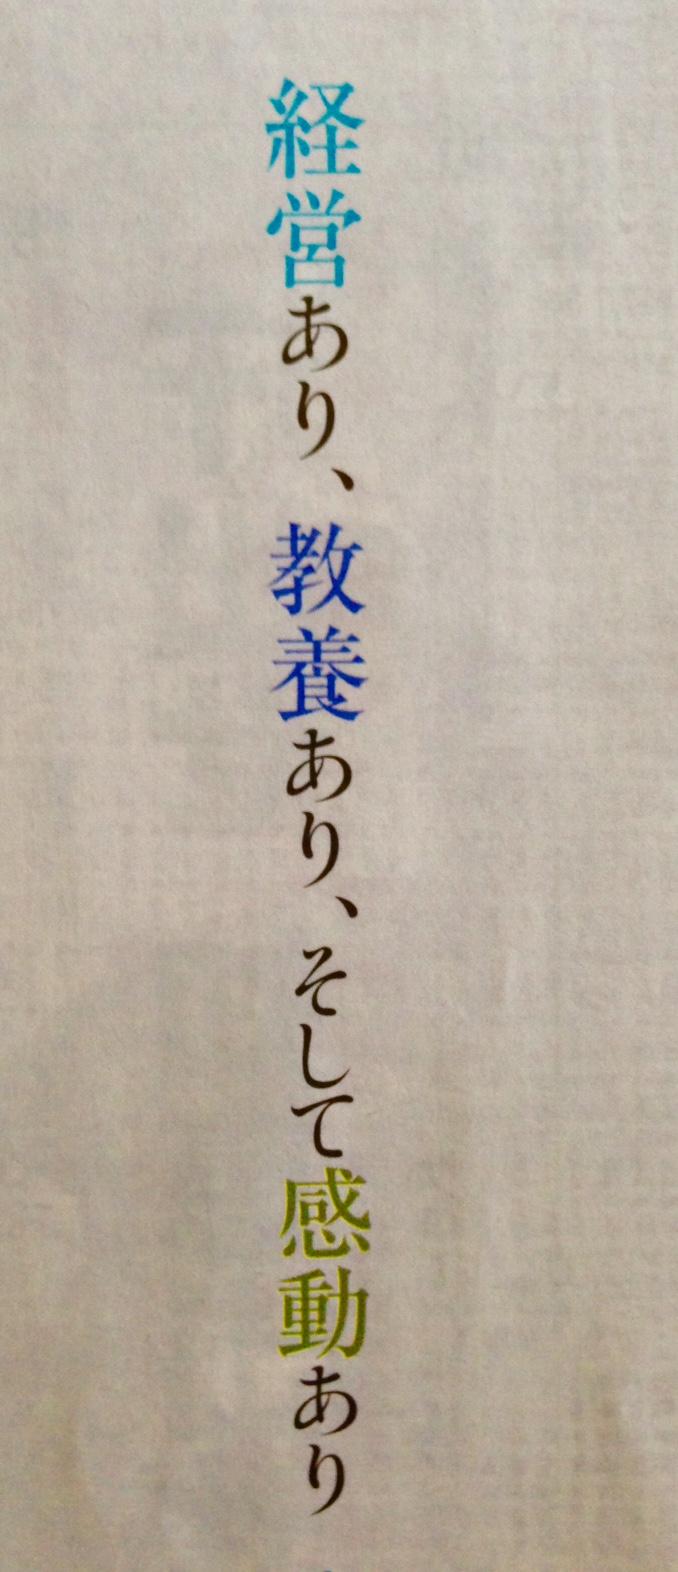 経営あり、教養あり、そして感動あり